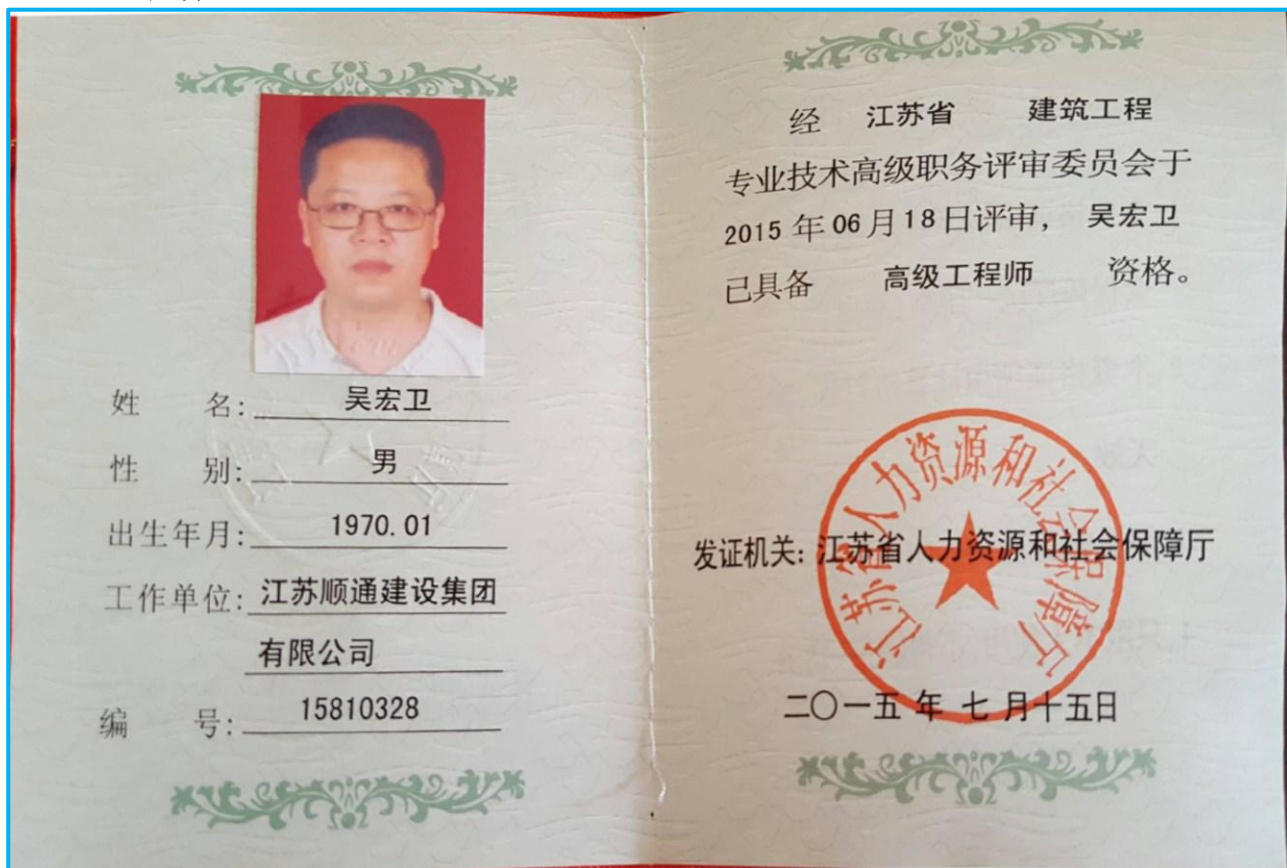 姓 名: 吴宏卫
性 别: 男
出生年月: 1970.01
工作单位: 江苏顺通建设集团
有限公司
编 号: 15810328
经 江苏省 建筑工程
专业技术高级职务评审委员会于
2015 年 06 月 18 日评审, 吴宏卫
已具备 高级工程师 资格。
江苏省人力资源和社会保障厅
发证机关: 江苏省人力资源和社会保障厅
二〇一五 年 七 月十五日